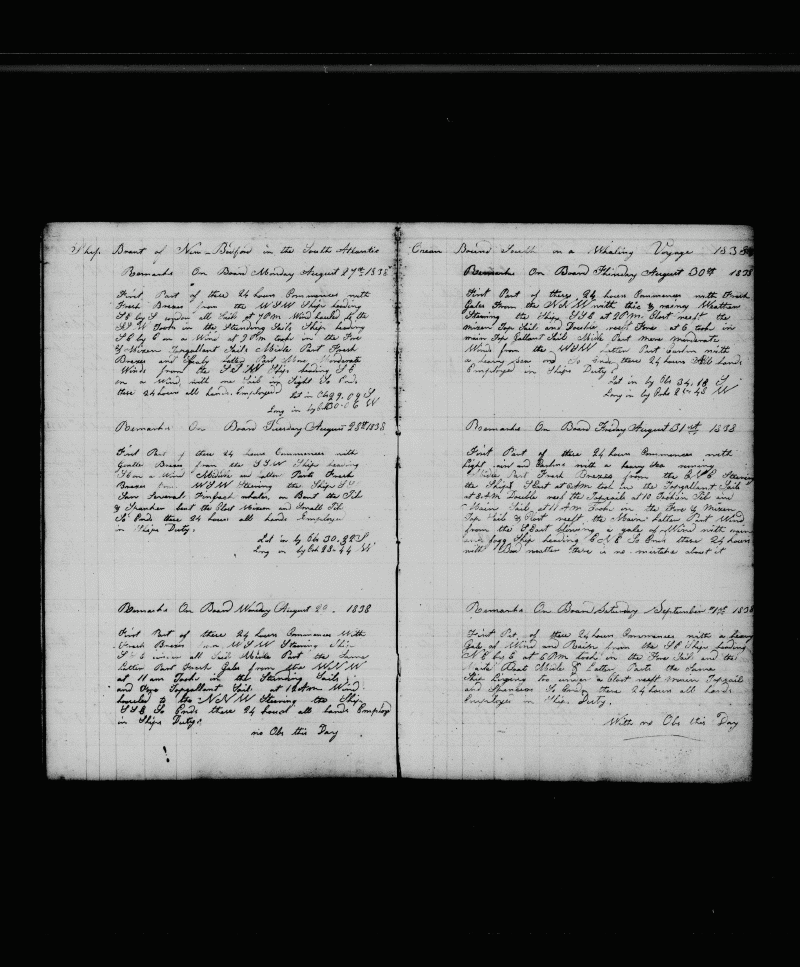 Ship Brant of New-Bedford in the South Atlantic
Remarks On Board Monday August 27th 1838
First Part of these 24 hours Commences with
Fresh Breezes from the WSW Ship heading
S by under all Sail at 7 PM Wind hauled to the
SSW Took in the Studding Sails Ship heading
SE by E on a Wind at 9 PM took in the Fore
& Mizen Topgallant Sails Middle Part Fresh
Breezes and Latter Part More Moderate
Winds from the SSW Ship heading SE
on a Wind with one Sail in Sight So Ends
these 24 hours all hands Employed Lat in Obs 29.09 S
Long in by Ch 30-06 W
Remarks On Board Tuesday August 28th 1838
First Part of these 24 hours Commences with
Gentle Breezes from the SSW Ship heading
on a Wind Middle and Latter Parts Fresh
Breezes from WSW Steering the Ship
Saw Several Finback whales Bent the Jib
& Spanker bent the Mizen and Small Jib
So Ends these 24 hours all hands Employed
in Ships Duty.
Lat in by Obs 30.32 S
Long in by Ch 28-44 W
Remarks On Board August 29 1838
First Part of these 24 hours Commences With
Fresh Breezes from WSW Steering Ship
under all Sail Middle Part the Same
Latter Part Fresh Gales from the WNW
at 11 am Took in the Studding Sails
and Topgallant Sail at 12 Am Wind
hauled to the NNW Steering the Ship
SSE So Ends these 24 hours all hands Employed
in Ships Duty.
no Obs this Day
Ocean Bound South on a Whaling Voyage 1838
Remarks On Board Thursday August 30th 1838
First Part of these 24 hours Commences with Fresh
Gales From the WNW with thick & rainy Weather
Steering the Ship SSE at 3 PM Close reeft the
mizen Top Sail and Double reeft Fore at 6 took in
main Top Gallant Sail Middle Part more moderate
Wind from the WSW Latter Part with
a heavy Sea on So Ends these 24 hours All hands
Employed in Ships Duty.
Lat in by Obs 34.18 S
Long in by 26-48 W
Remarks On Board Friday August 31st 1838
First Part of these 24 hours Commences with
Light airs and with a heavy Sea running
Middle Part Fresh Breezes from the Steering
the Ship at 6 Am took in the Topgallant Sails
at 8 AM Double reef the Topsails at 10 Took in Jib and
Main Sail, at 11 AM Took in the Fore & Mizen
Top Sails & Close reeft the Main Latter Part Wind
from the Blowing a gale of Wind with rain
and fogg Ship heading ENE So Ends these 24 hours
with Bad weather there is no mistake about it
Remarks On Board Saturday September 1st 1838
First Part of these 24 hours Commences with a heavy
Gale of Wind and Rain from the SE Ship heading
NE by E at 6 PM took in the Fore Sail and the
Middle & Latter Parts the Same
Ship Laying to under a Close reeft main Topsail
and Spanker So Ends these 24 hours all hands
Employed in Ships Duty.
With no Obs this Day